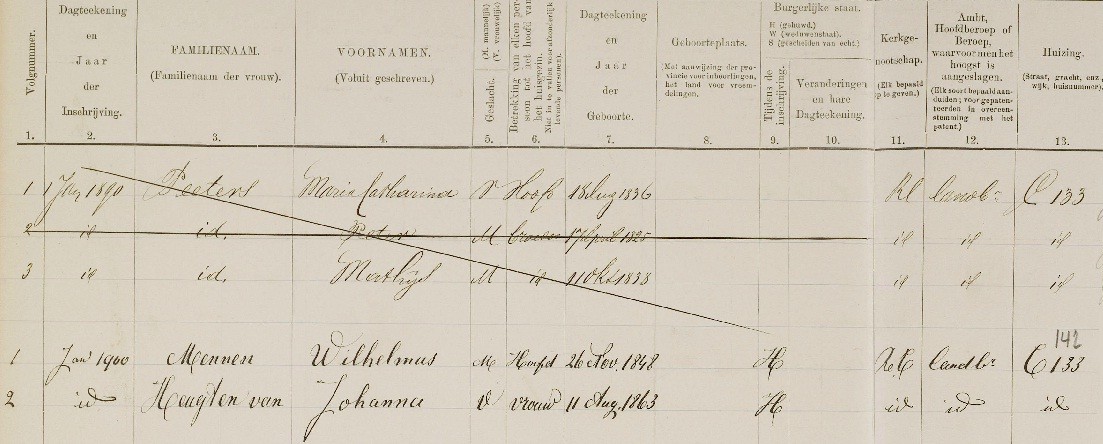 Volgnummer.
1.
Dagteekening
en
Jaar
der
Inschrijving.
2.
FAMILIENAAM.
(Familienaam der vrouw).
3.
VOORNAMEN.
(Voluit geschreven.)
4.
Geslacht. (M. mannelijk) (V. vrouwelijk)
5.
Betrekking van elken persoon tot het hoofd van het huisgezin.
6.
Dagteekening
en
Jaar
der
Geboorte.
7.
Geboorteplaats.
(Met aanwijzing der provincie voor inboorlingen, het land voor vreemdelingen.)
8.
Burgerlijke staat.
H (gehuwd.)
W (weduwenstaat).
S (gescheiden van echt.)
Tijdens de inschrijving.
9.
Veranderingen
en hare
Dagteekening.
10.
Kerkgenootschap.
(Elk bepaald op te geven.)
11.
Ambt,
Hoofdberoep of
Beroep,
waarvoor men het
hoogst is
aangeslagen.
(Elk soort bepaald aanduiden; voor gepatenteerden in overeenstemming met het patent.)
12.
Huizing.
(Straat, gracht, enz., wijk, huisnummer).
13.
1 1 Jan 1890 Peeters Maria Catharina V Hoofd 18 Aug 1836 RC landbr C 133
2 id id. Peter M 17 April 1825 id id id
3 id id. Mathijs M id 11 Okt 1838 id id id
142
1 Jan 1900 Mennen Wilhelmus M Hoofd 26 Nov. 1848 H R.C landbr C 133
2 id Heugten van Johanna V vrouw 11 Aug. 1863 H id id id